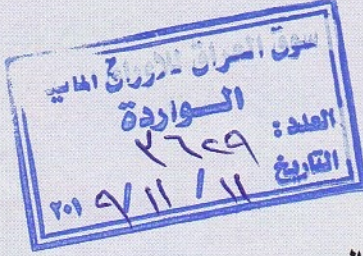 سوق العراق للاوراق المالية
الـواردة
العدد : ٣٦٢٩
التاريخ ١١ / ١١ / ٢٠١٩